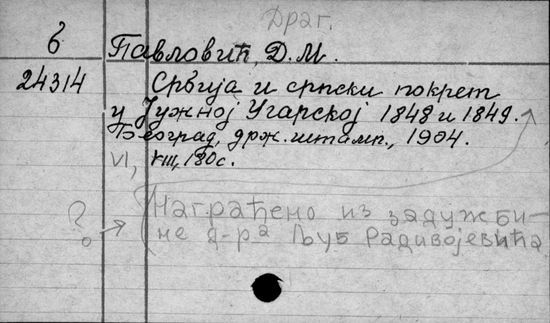 Драг.
6 Павловић, Д. М.
24314 Србија и српски покрет
у Јужној Угарској 1848 и 1849.
Београд, држ. штамп., 1904.
VI, VIII, 180 с.
Награђено из задужби-
? не д-ра Љуб Радивојевића